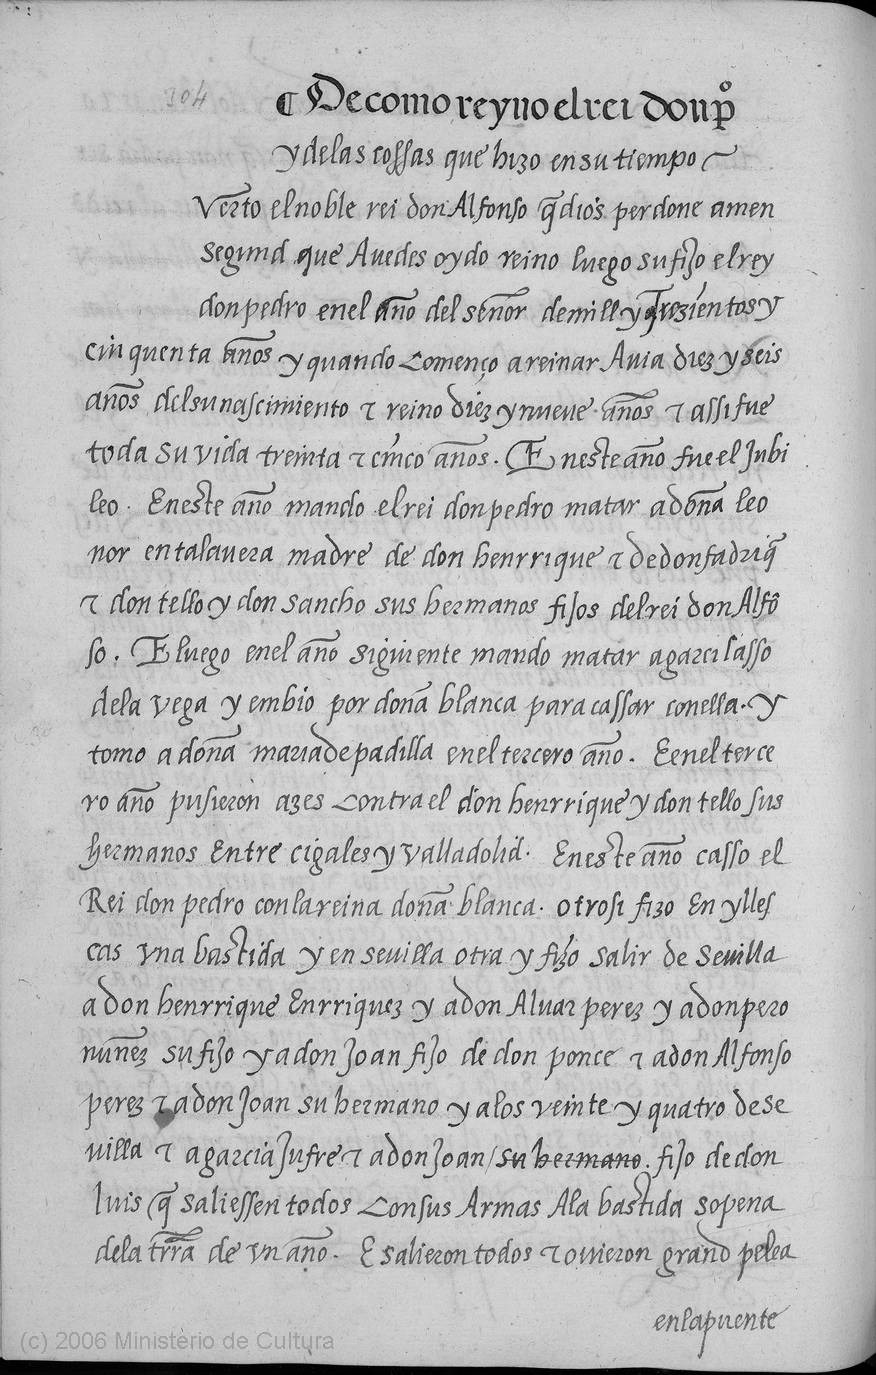 304
¶ De como reyno el rei don pº
y delas cossas que hizo en su tiempo
Verto el noble rei don Alfonso q̃ dios perdone amen
segund que Auedes oydo reino luego su fijo el rey
don pedro en el año del señor de mill y trezientos y
cinquenta años y quando Començo a reinar Auia diez y seis
años del su nascimiento τ reino diez y nueue años τ assi fue
toda su vida treinta τ cinco años. E neste año fue el Jubi
leo. Eneste año mando el rei don pedro matar a doña leo
nor en talauera madre de don henrrique τ de don fadriq̃
τ don tello y don sancho sus hermanos fijos del rei don Alfõ
so. E luego en el año siguiente mando matar a garci lasso
dela vega y embio por doña blanca para cassar con ella. y
tomo a doña maria de padilla en el tercero año. E en el terce
ro año pusieron azes Contra el don henrrique y don tello sus
hermanos Entre cigales y valladolid. Eneste año casso el
Rei don pedro con la reina doña blanca. otrosi fizo En ylles
cas vna bastida y en seuilla otra y fizo salir de Seuilla
a don henrrique Enrriquez y a don Aluar perez y a don pero
nuñez su fijo y a don Joan fijo de don ponce τ a don Alfonso
perez τ a don Joan su hermano y alos veinte y quatro de Se
uilla τ a garcia Jufre τ a don Joan / su hermano. fijo de don
luis q̃ saliessen todos Con sus Armas Ala bastida so pena
dela trrã de vn año. E salieron todos τ ouieron grand pelea
en la puente
(c) 2006 Ministerio de Cultura